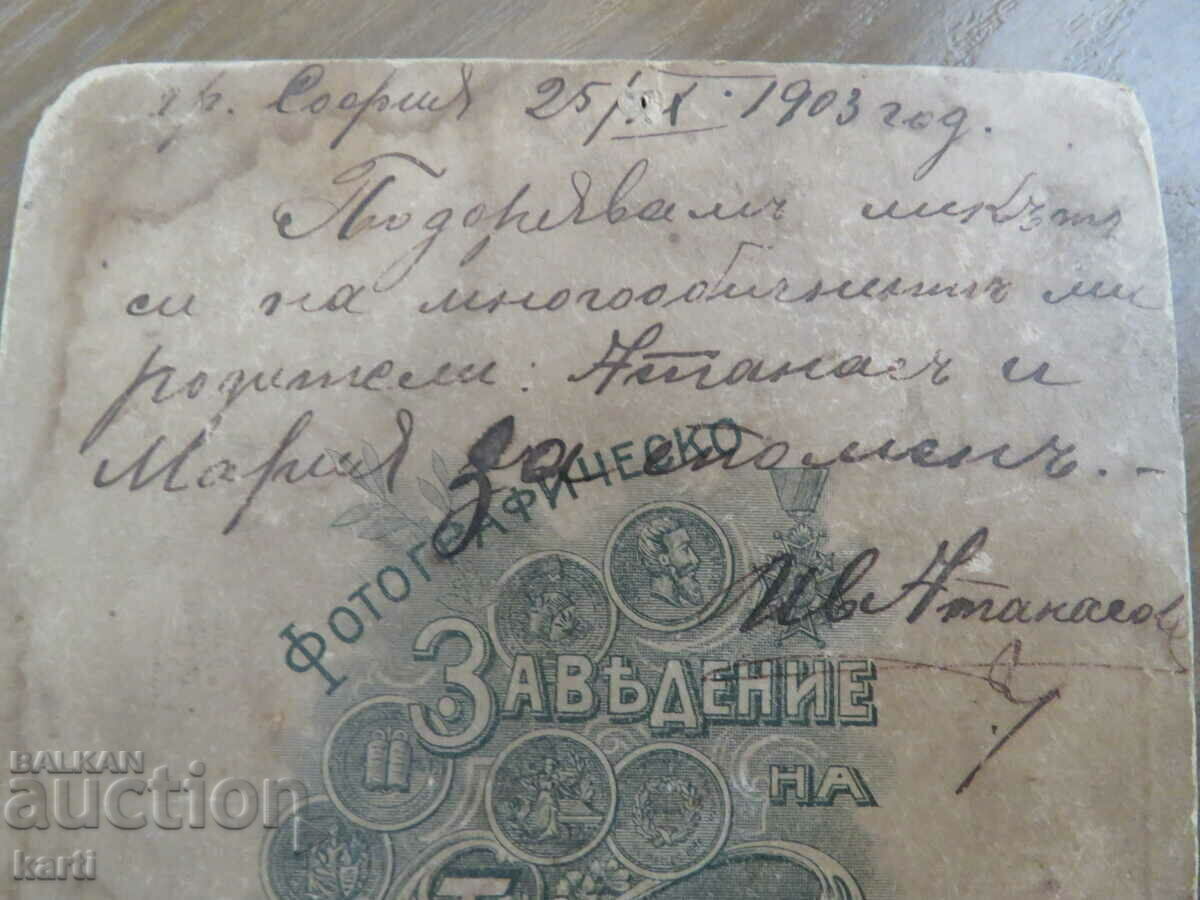 гр. София 25/IX. 1903 год.
Подорявамъ ликътъ
си на многообичнитъ ми
родители: Атанасъ и
Мария за споменъ. -
Ив Атанасов
ФОТОГРАФИЧЕСКО
ЗАВѢДЕНИЕ
НА
BALKAN
auction
karti